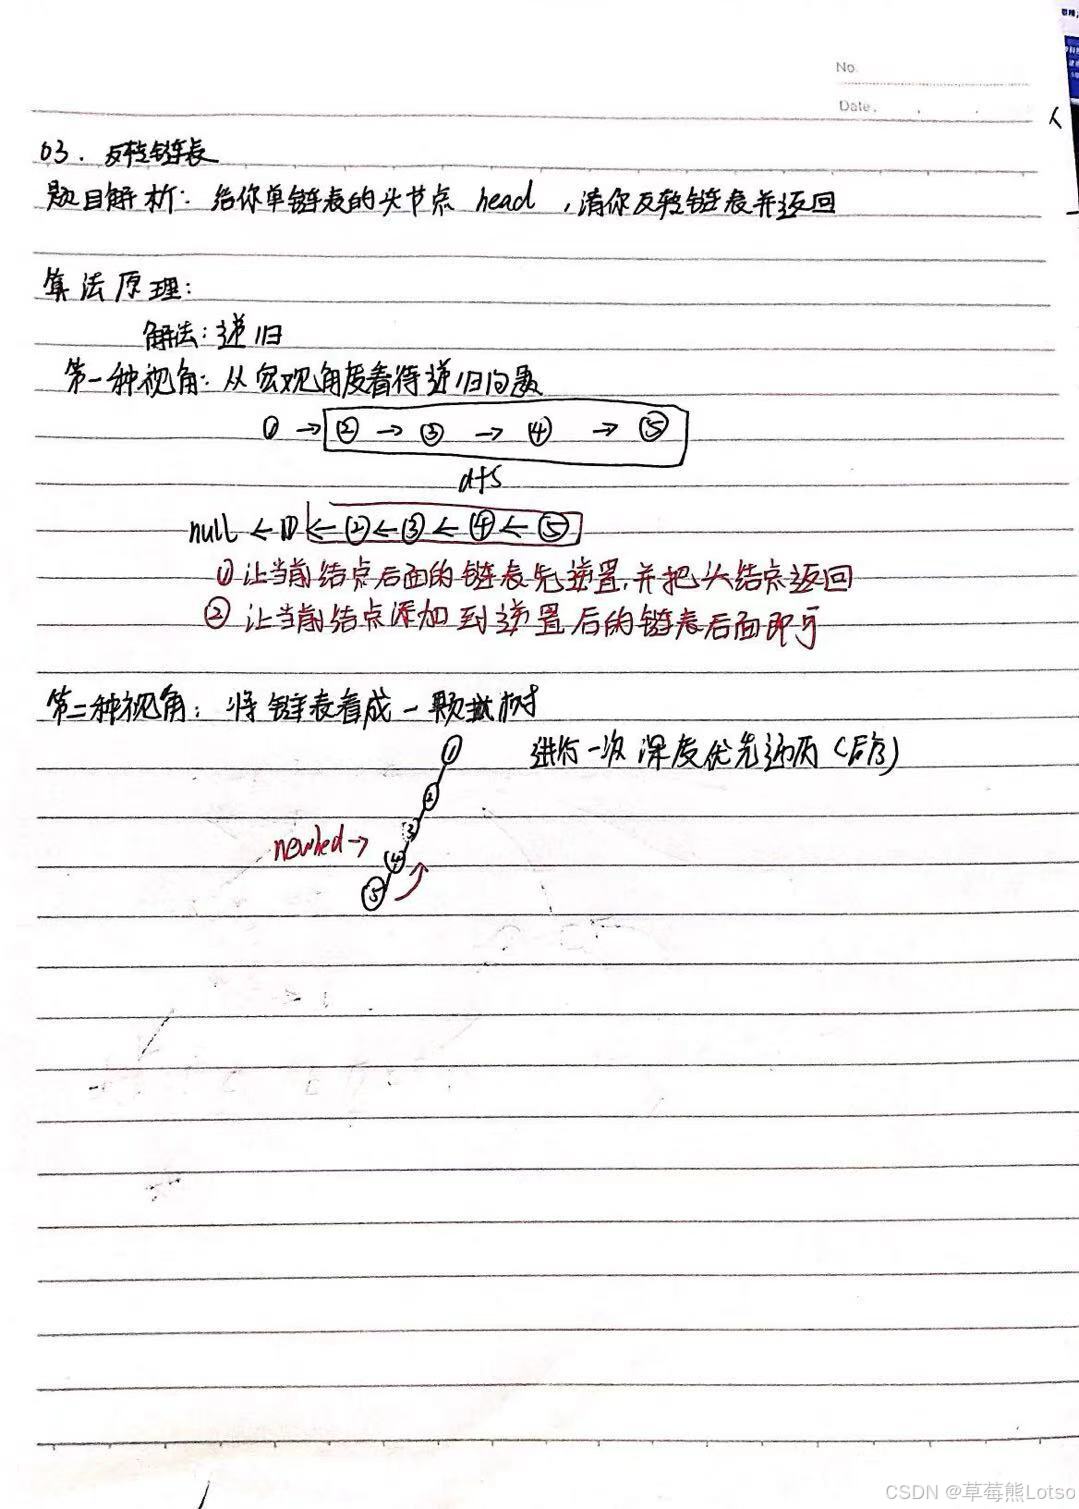 No.
Date.
03. 反转链表
题目解析：给你单链表的头节点 head ，请你反转链表并返回
算法原理：
解法：递归
第一种视角：从宏观角度看待递归问题
① → ② → ③ → ④ → ⑤
dfs
null ← ① ← ② ← ③ ← ④ ← ⑤
① 让当前结点后面的链表先逆置，并把头结点返回
② 让当前结点添加到逆置后的链表后面即可
第二种视角：将链表看成一颗树
进行一次深度优先遍历（后序）
①
②
③
newhed →
④
⑤
CSDN @草莓熊Lotso